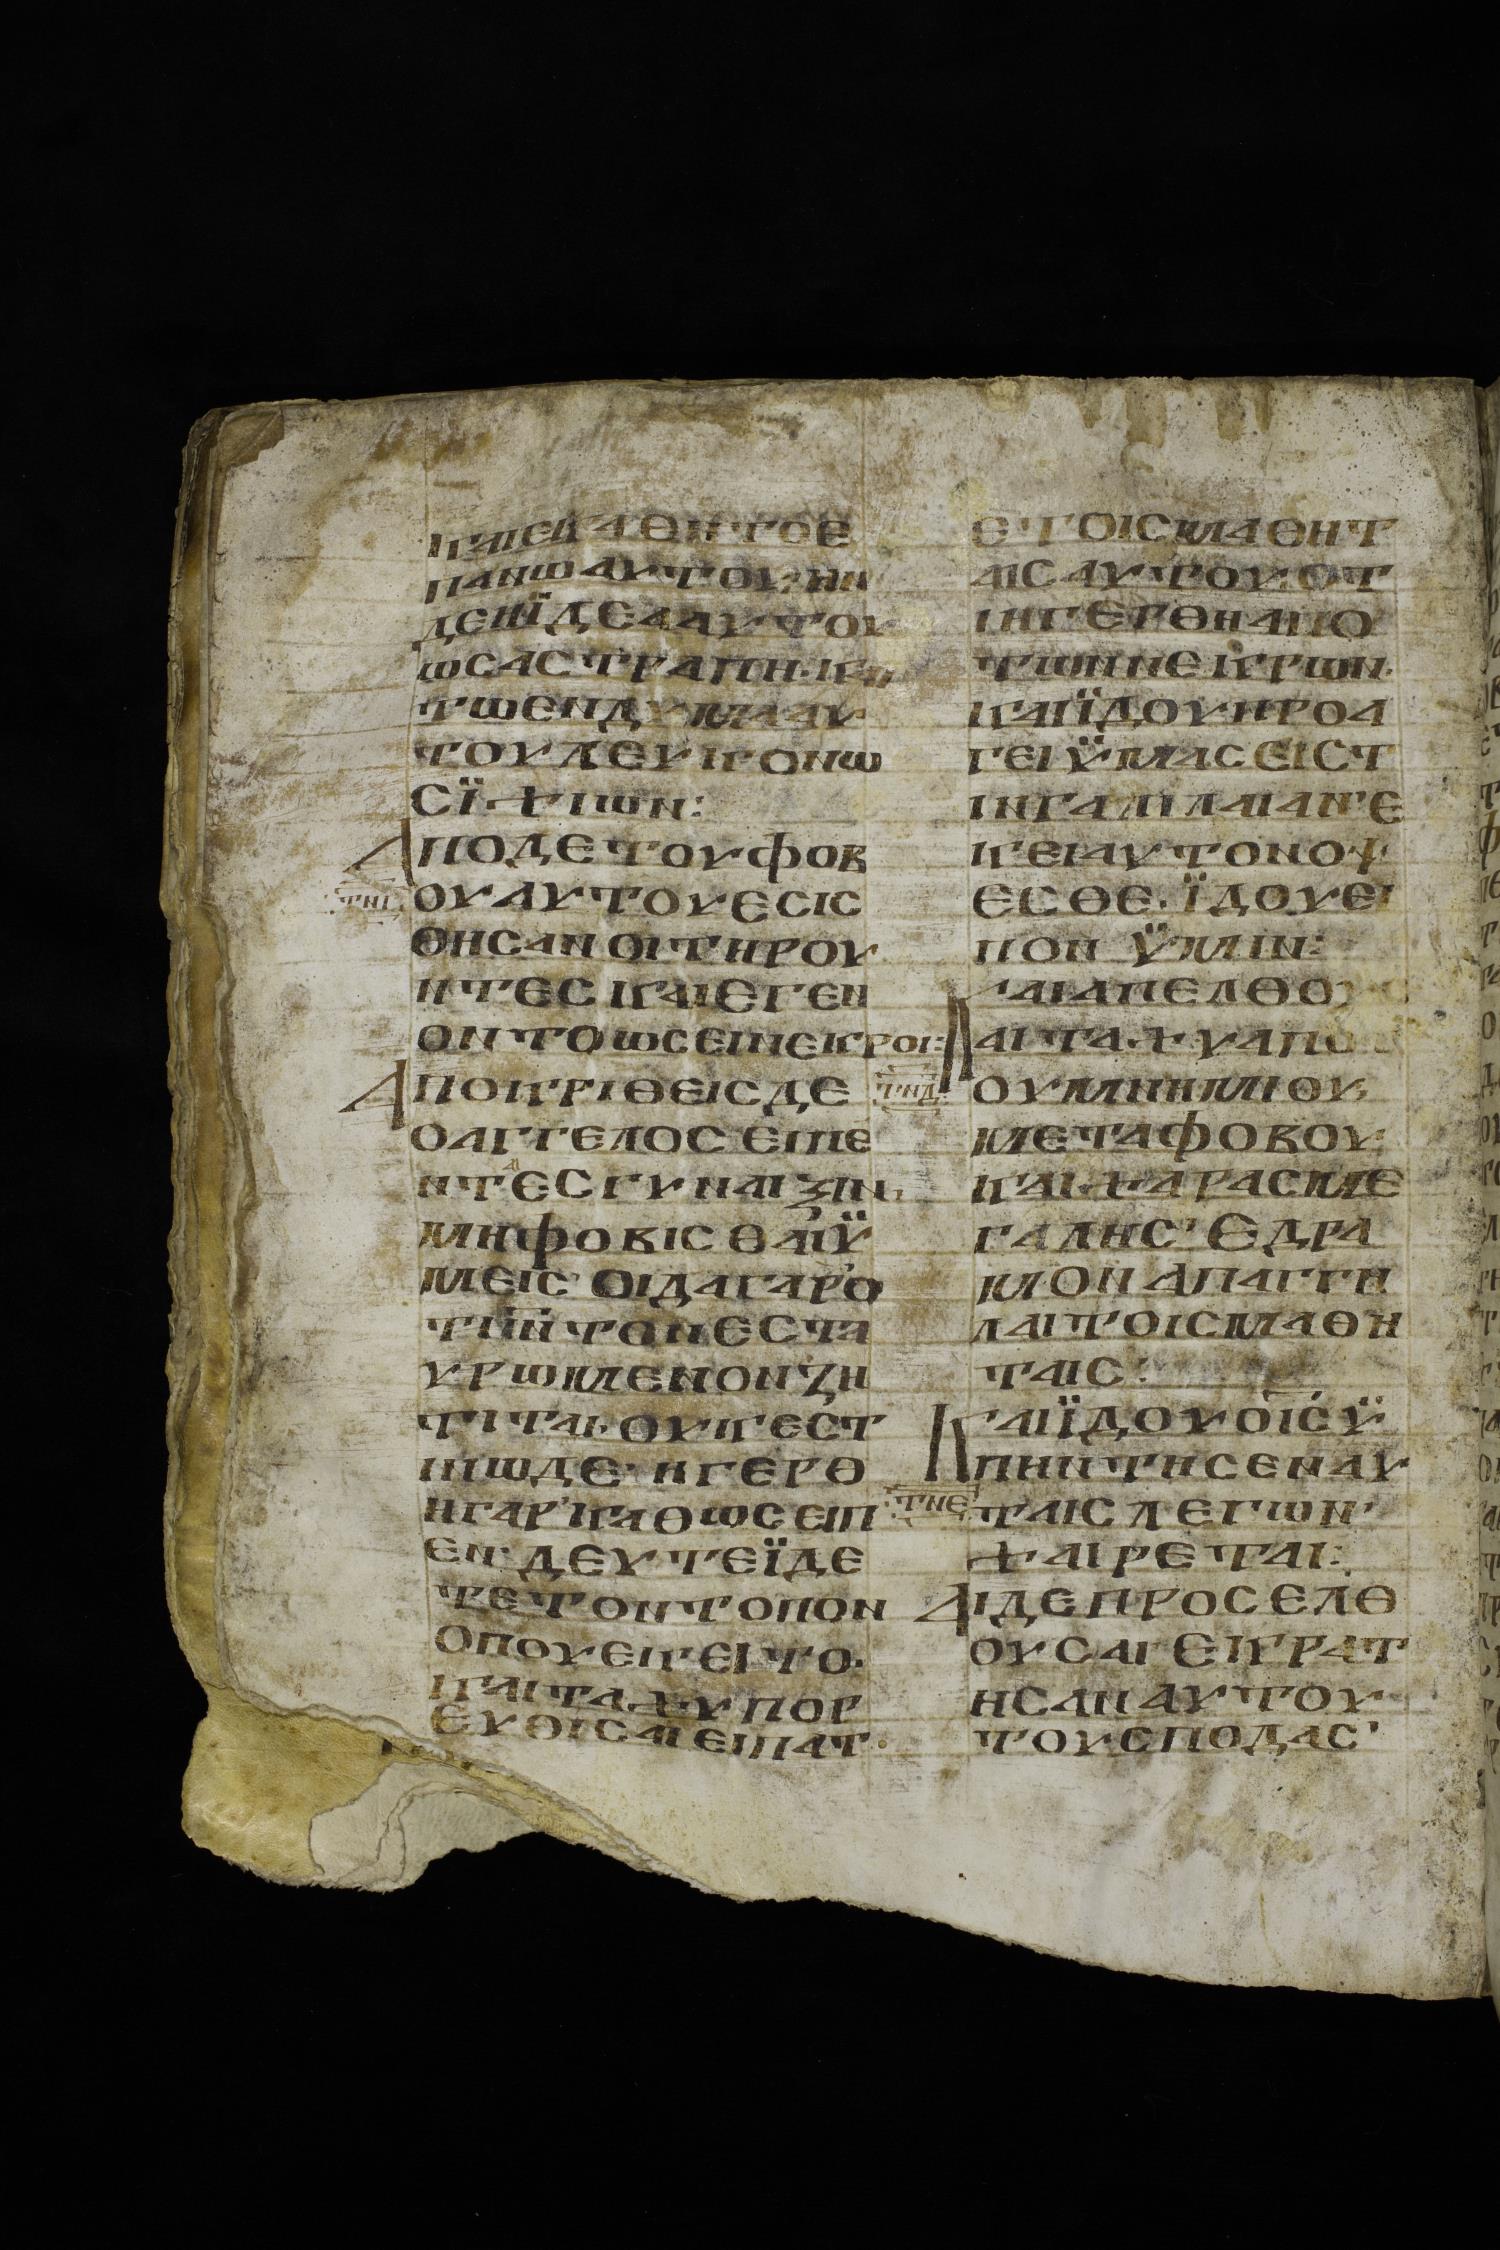 ΚΑΙΕΚΑΘΗΤΟΕ
ΠΑΝΩΑΥΤΟΥ·ΗΝ
ΔΕΗΪΔΕΑΑΥΤΟΥ
ΩСΑСΤΡΑΠΗ·ΚΑΙ
ΤΩΕΝΔΥΜΑΑΥ
ΤΟΥΛΕΥΚΟΝΩ
СΪΧΙΩΝ:
ΑΠΟΔΕΤΟΥΦΟΒ
ΟΥΑΥΤΟΥΕСΙС
ΘΗСΑΝΟΙΤΗΡΟΥ
ΝΤΕСΚΑΙΕΓΕΝ
ΟΝΤΟΩСΕΙΝΕΚΡΟΙ:
ΑΠΟΚΡΙΘΕΙСΔΕ
ΟΑΓΓΕΛΟСΕΙΠΕ
ΝΤΕСΓΥΝΑΙΞΙΝ
ΜΗΦΟΒΙСΘΑΙΫ
ΜΕΙС ΟΙΔΑΓΑΡΟ
ΤΙΙΝΤΟΝΕСΤΑ
ΥΡΩΜΕΝΟΝΖΗ
ΤΙΤΑΙ·ΟΥΚΕСΤ
ΙΝΩΔΕ·ΗΓΕΡΘ
ΗΓΑΡ'ΚΑΘΩСΕΙΠ
ΕΝ·ΔΕΥΤΕΪΔΕ
ΤΕΤΟΝΤΟΠΟΝ
ΟΠΟΥΕΚΕΙΤΟ·
ΚΑΙΤΑΧΥΠΟΡ
ΕΥΘΙСΑΙΕΙΠΑΤ
Ε·ΤΟΙСΜΑΘΗΤ
ΑΙСΑΥΤΟΥ·ΟΤ
ΙΗΓΕΡΘΗΑΠΟ
ΤΩΝΝΕΚΡΩΝ·
ΚΑΙΪΔΟΥΗΡΟΑ
ΓΕΙΫΜΑСΕΙСΤ
ΙΝΓΑΛΙΛΑΙΑΝ'Ε
ΚΕΙΑΥΤΟΝΟΨ
ΕСΘΕ·ΪΔΟΥΕΙ
ΠΟΝ ΫΜΙΝ:
ΚΑΙΑΠΕΛΘΟΥС
ΑΙΤΑΧΥΑΠΟ
ΤΝΔ ΟΥΜΝΗΜΙΟΥ
ΜΕΤΑΦΟΒΟΥ
ΚΑΙΧΑΡΑСΜΕ
ΓΑΛΗС'ΕΔΡΑ
ΜΟΝΑΠΑΓΓΗ
ΛΑΙΤΟΙСΜΑΘΗ
ΤΑΙС:
ΚΑΙΪΔΟΥΟΙСΫ
ΠΗΝΤΗСΕΝΑΥ
ΤΝΕ ΤΑΙСΛΕΓΩΝ'
ΧΑΙΡΕΤΑΙ:
ΑΙΔΕΠΡΟСΕΛΘ
ΟΥСΑΙΕΚΡΑΤ
ΗСΑΝΑΥΤΟΥ
ΤΟΥСΠΟΔΑС'